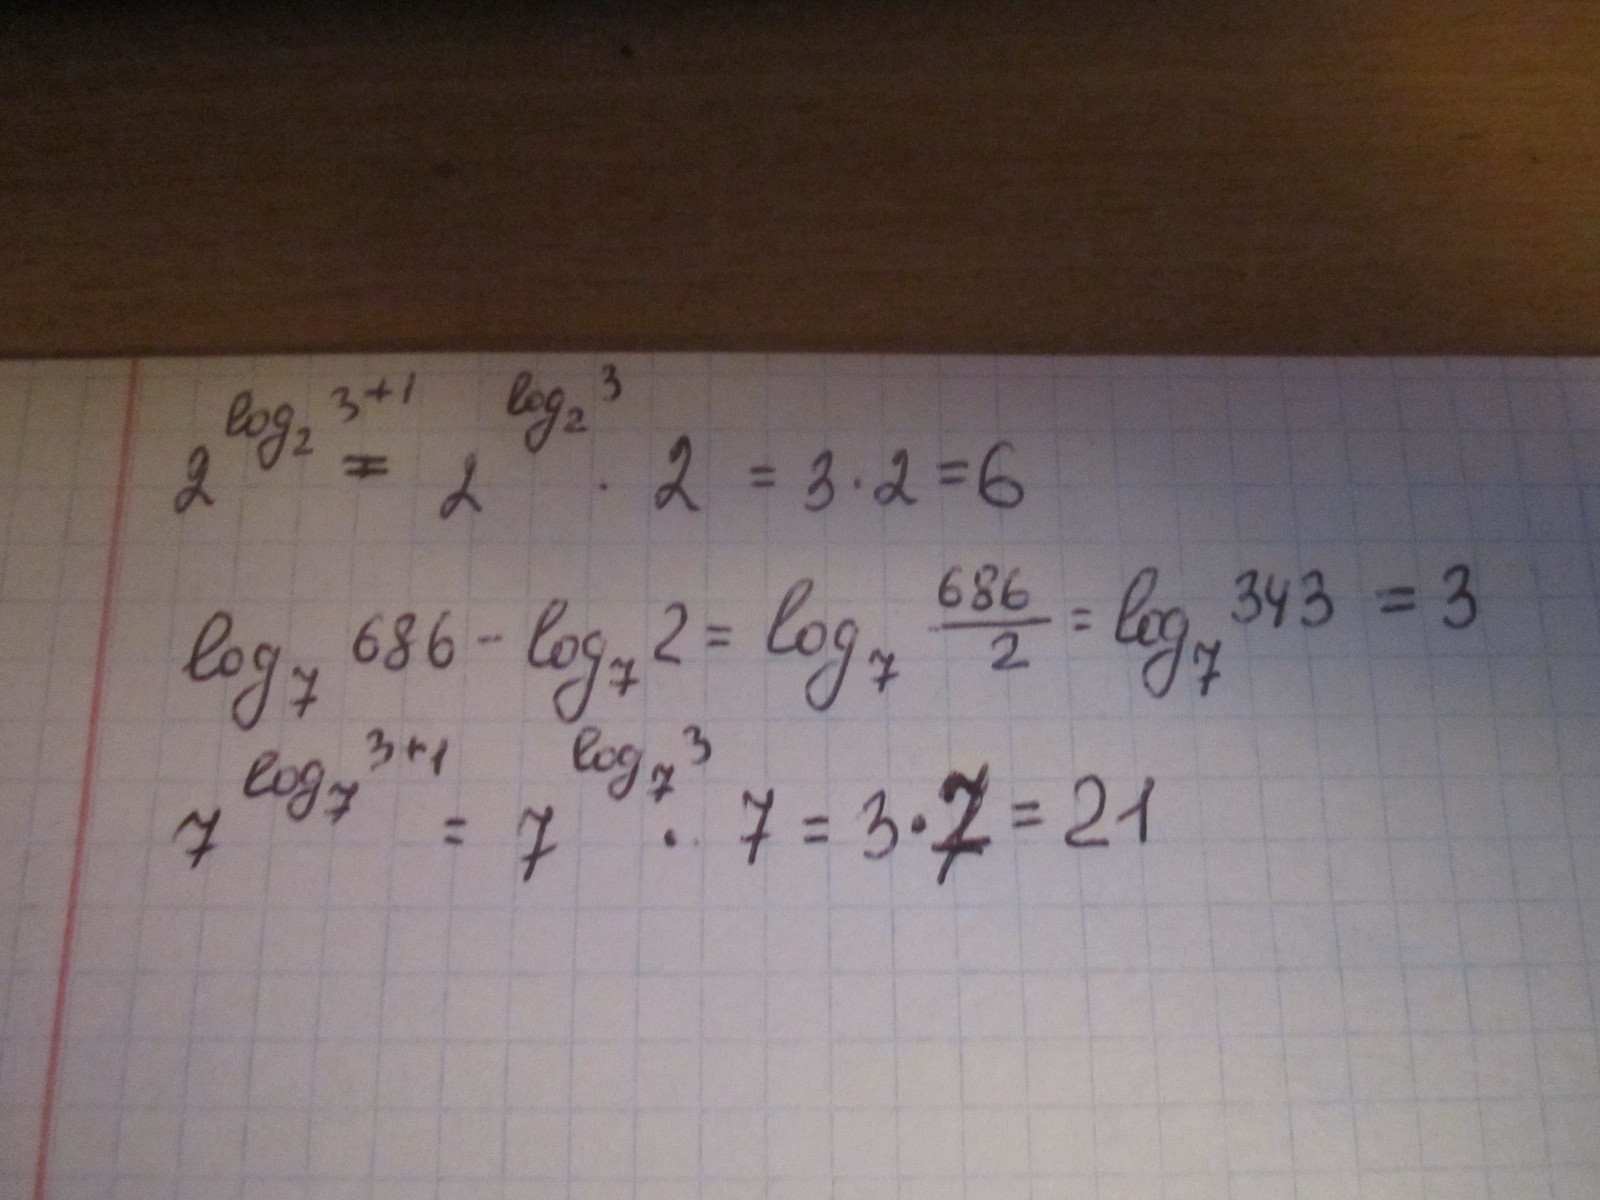 2^{log_2 3+1} = 2^{log_2 3} · 2 = 3 · 2 = 6
log_7 686 - log_7 2 = log_7 \frac{686}{2} = log_7 343 = 3
7^{log_7 3+1} = 7^{log_7 3} · 7 = 3 · 7 = 21